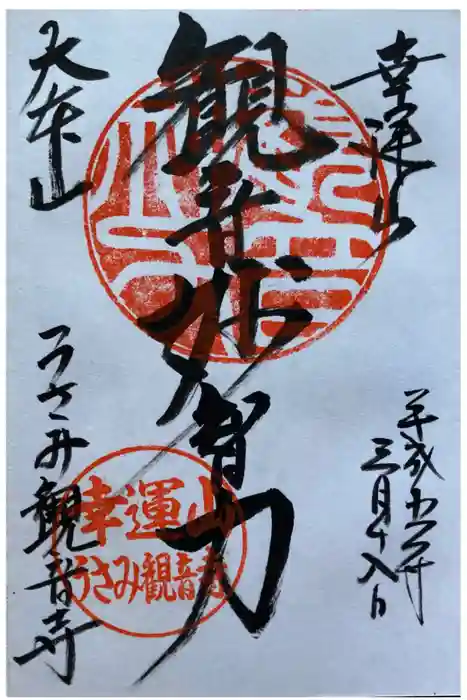 幸運山
平成
三月十八日
観音妙智力
大本山
うさみ観音寺
幸運山
うさみ観音寺